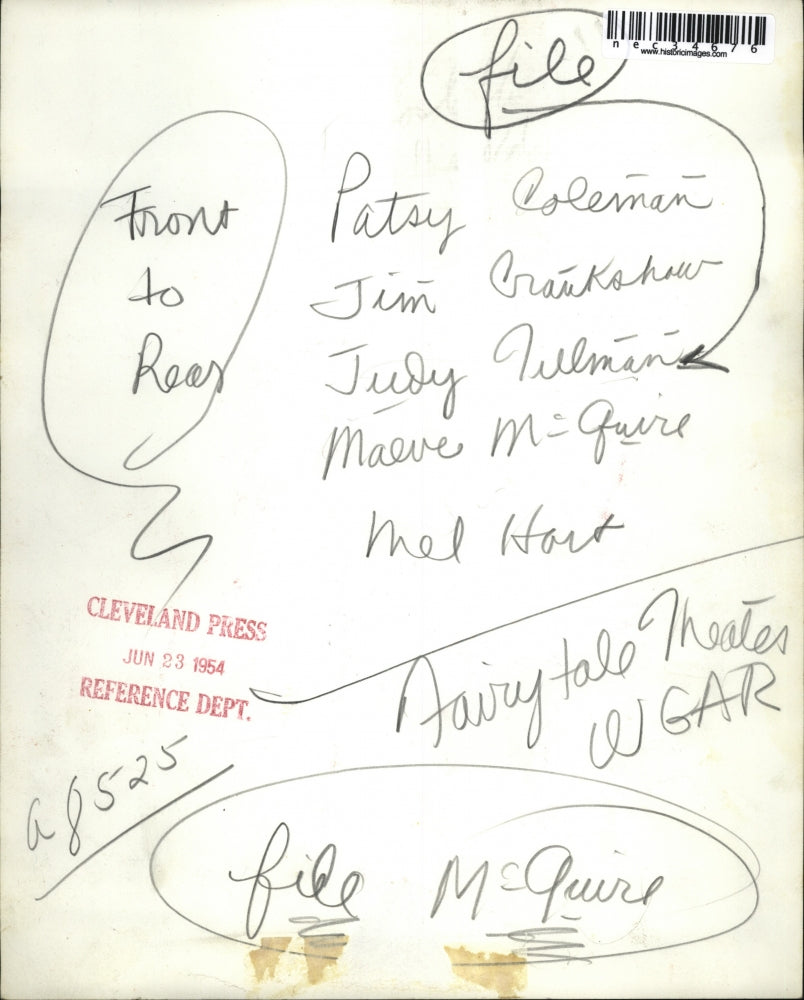 nec34676
www.historicimages.com
file
Front
to
Rear
Patsy Coleman
Jim Crankshaw
Judy Tillman
Maeve McGuire
Mel Hart
CLEVELAND PRESS
JUN 23 1954
REFERENCE DEPT.
Fairytale Theater
WGAR
a8525
file McGuire